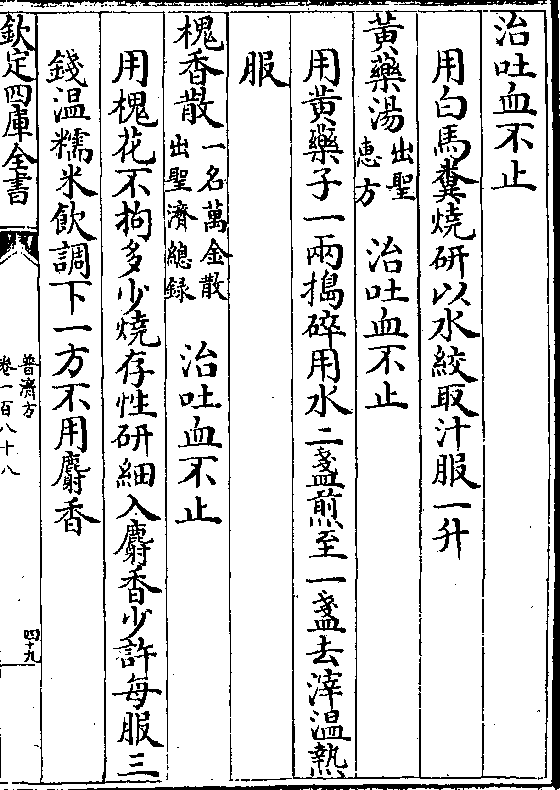 治吐血不止
用白馬糞燒研以水絞取汁服一升
黃藥湯出聖惠方 治吐血不止
用黄藥子一兩搗碎用水二盞煎至一盞去滓温熱
服
槐香散一名萬金散出聖濟總録 治吐血不止
用槐花不拘多少燒存性研細入麝香少許每服三
錢温糯米飲調下一方不用麝香
欽定四庫全書
普濟方
卷一百八十八
四十九